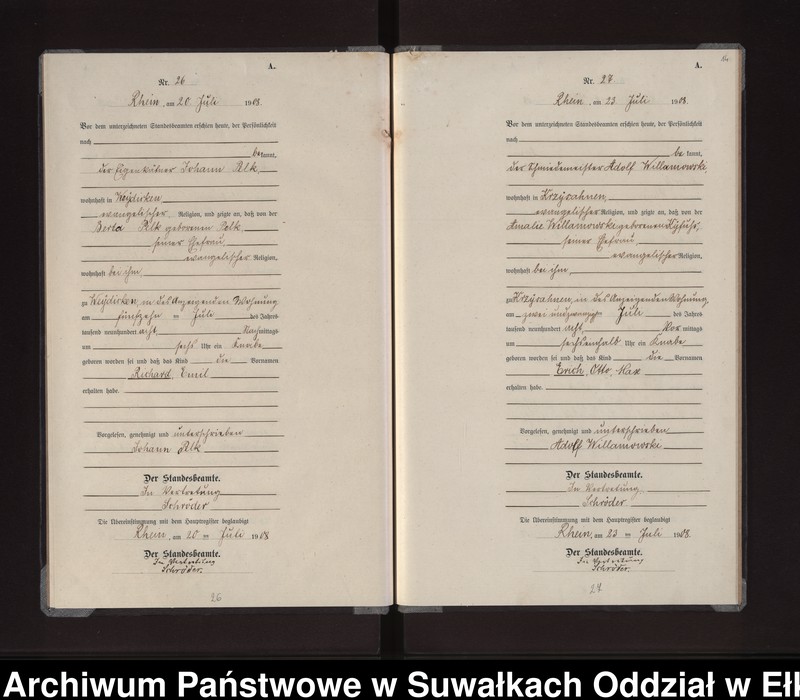 A.
Nr. 26
Rhein, am 20. Juli 1908.
Vor dem unterzeichneten Standesbeamten erschien heute, der Persönlichkeit
nach
bekannt,
der Eigenkätner Johann Pelk
wohnhaft in Weydicken
evangelischer Religion, und zeigte an, daß von der
Berta Pelk geborenen Pelk
seiner Ehefrau
evangelischer Religion,
wohnhaft bei ihm
zu Weydicken, in des Anzeigenden Wohnung
am fünfzehn ten Juli des Jahres
tausend neunhundert acht Nachmittags
um sechs Uhr ein Knabe
geboren worden sei und daß das Kind die Vornamen
Richard Emil
erhalten habe.
Vorgelesen, genehmigt und unterschrieben
Johann Pelk
Der Standesbeamte.
In Vertretung
Schröder
Die Übereinstimmung mit dem Hauptregister beglaubigt
Rhein, am 20 ten Juli 1908
Der Standesbeamte.
In Vertretung
Schröder.
26
A.
Nr. 27
Rhein, am 23. Juli 1908.
Vor dem unterzeichneten Standesbeamten erschien heute, der Persönlichkeit
nach
bekannt,
der Schmiedemeister Adolf Willamowski,
wohnhaft in Krzysahnen,
evangelischer Religion, und zeigte an, daß von der
Amalie Willamowski geborenen
seiner Ehefrau
evangelischer Religion,
wohnhaft bei ihm
zu Krzysahnen, in des Anzeigenden Wohnung,
am zwei und zwanzig ten Juli des Jahres
tausend neunhundert acht Vormittags
um sechseinhalb Uhr ein Knabe
geboren worden sei und daß das Kind die Vornamen
Erich, Otto, Max
erhalten habe.
Vorgelesen, genehmigt und unterschrieben
Adolf Willamowski
Der Standesbeamte.
In Vertretung
Schröder
Die Übereinstimmung mit dem Hauptregister beglaubigt
Rhein, am 23 ten Juli 1908.
Der Standesbeamte.
In Vertretung
Schröder.
27
Archiwum Państwowe w Suwałkach Oddział w Eł